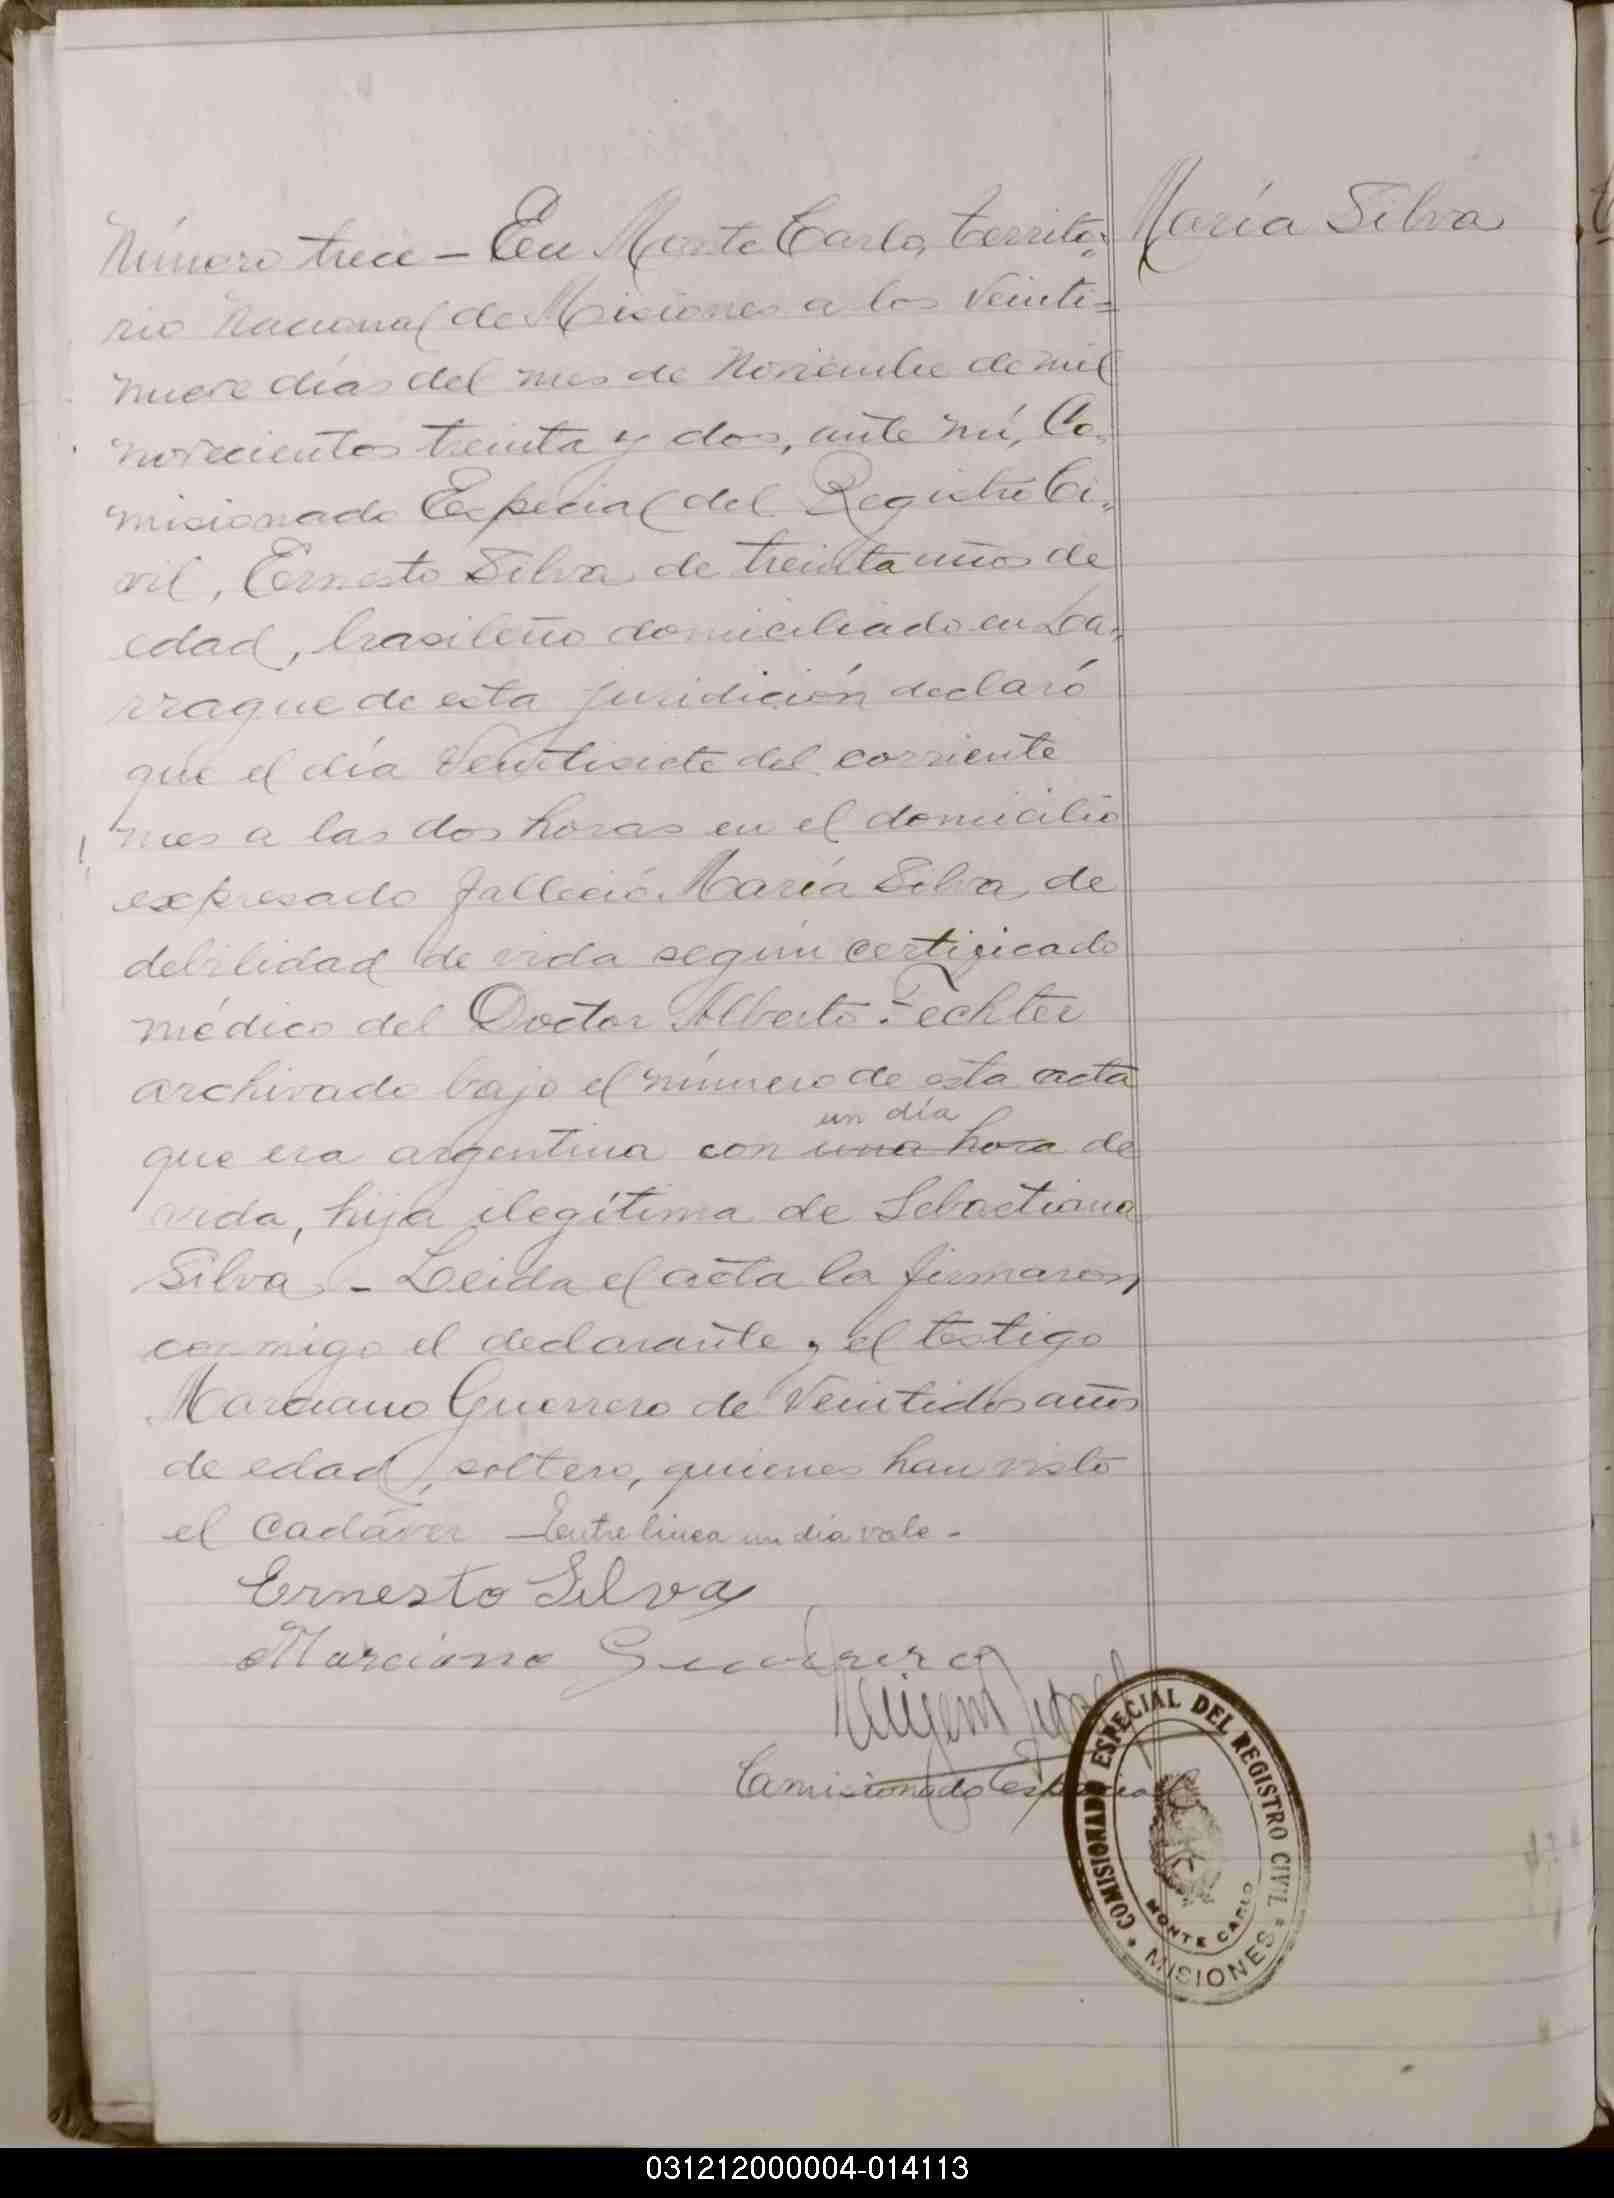 María Silva
Número trece - En Monte Carlo, Territo=
rio Nacional de Misiones a los veinti=
nueve días del mes de Noviembre de mil
novecientos treinta y dos, ante mí, Co=
misionado Especial del Registro Ci=
vil, Ernesto Silva de treinta años de
edad, brasileño domiciliado en La=
rrague de esta juridición declaró
que el día veintisiete del corriente
mes a las dos horas en el domicilio
expresado falleció María Silva, de
debilidad de vida según certificado
médico del Doctor Alberto Fechter
archivado bajo el número de esta acta
un día
que era argentina con una hora de
vida, hija ilegítima de Sebastiana
Silva. - Leida el acta la firmaron
conmigo el declarante y el testigo
Marciano Guerrero de veintidos años
de edad, soltero, quienes han visto
el cadáver - Entre linea un día vale -
Ernesto Silva
Marciano Guerrero
Comisionado Especial
COMISIONADO ESPECIAL DEL REGISTRO CIVIL
MONTE CARLO
* MISIONES *
031212000004-014113